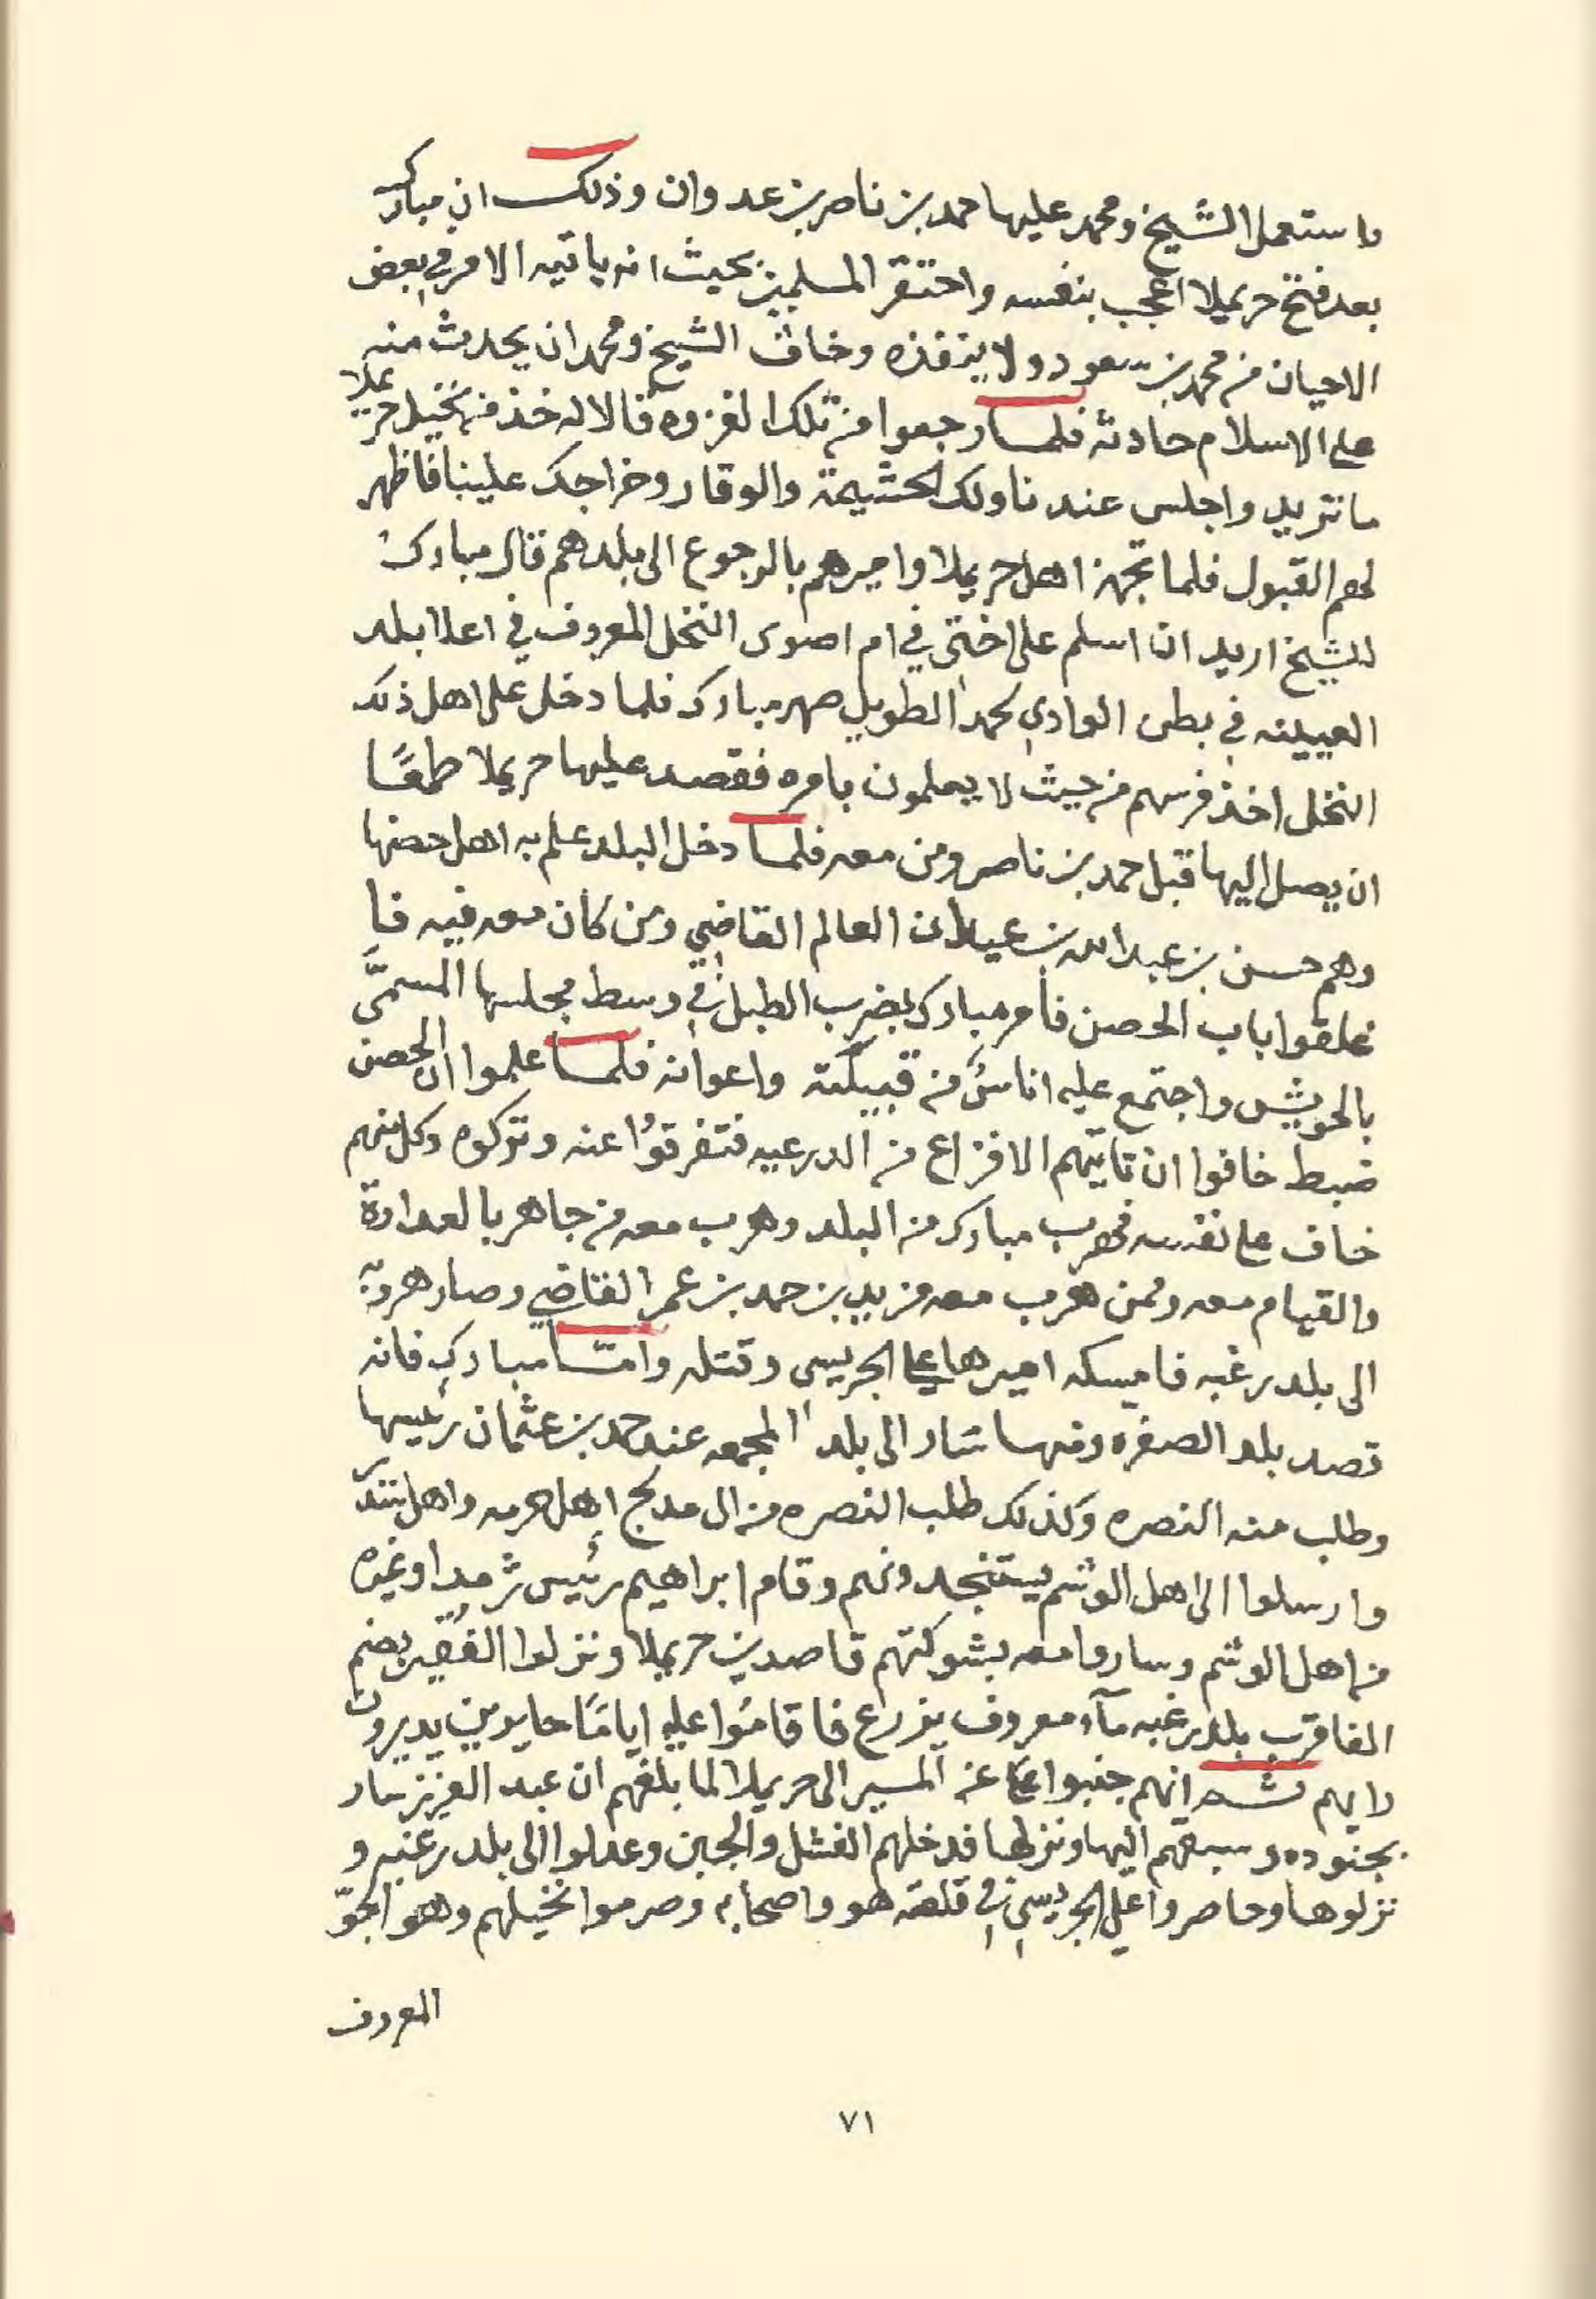 واستعمل الشيخ ومحمد عليها حمد بن ناصر بن عدوان وذلك ان مبارك
بعد فتح حريملا اعجب بنفسه واحتقر المسلمين بحيث انه ياتيه الامر في بعض
الاحيان من محمد بن سعود ولا ينفذه وخاف الشيخ ومحمد ان يحدث منه
على الاسلام حادثه فلما رجعوا من تلك الغزوه قالا له خذ من نخيل حريملا
ما تريد واجلس عندنا ولك الحشيمة والوقار وخراجك علينا فاظهر
لهم القبول فلما تجهز اهل حريملا واميرهم بالرجوع الى بلدهم قال مبارك
للشيخ اريد ان اسلم على اختى في ام اصوى النخل المعروف في اعلا بلد
العيينه في بطن الوادي لحمد الطويل صهر مبارك فلما دخل على اهل ذلك
النخل اخذ فرسهم من حيث لا يعلمون بامره فقصد عليها حريملا طمعًا
ان يصل اليها قبل حمد بن ناصر ومن معه فلما دخل البلد علم به اهل حصنها
وهم حسن بن عبد الله بن عيدان العالم القاضي ومن كان معه فيه فا
غلقوا باب الحصن فامر مبارك بضرب الطبل في وسط مجلسها المسمَّى
بالحويش واجتمع عليه اناسٌ من قبيلته واعوانه فلما علموا ان الحصن
ضبط خافوا ان تاتيهم الافزاع من الدرعيه فتفرقوُا عنه وتركوه وكل منهم
خاف على نفسه فهرب مبارك من البلد وهرب معه من جاهر بالعداوة
والقيام معه وممن هرب معه مزيد بن حمد بن عمر القاضي وصار هروبه
الى بلد رغبه فامسكه اميرها علي الجريسي وقتله وامّا مبارك فانه
قصد بلد الصفره ومنها سار الى بلد المجمعه عند حمد بن عثمان رئيسها
وطلب منه النصره وكذلك طلب النصره من ال مدلج اهل حرمه واهل سدير
وارسلوا الى اهل الوشم يستنجدونهم وقام ابراهيم رئيس ثرمدا وغيره
من اهل الوشم وساروا معه بشوكتهم قاصدين حريملا ونزلوا الفُقير بضم
الفا قرب بلد رغبه مآء معروف يزرع فاقامُوا عليه ايامًا حايرين يديرون
رايهم ثم انهم جنبوا عن المسير الى حريملا لما بلغهم ان عبد العزيز سار
بجنوده وسبقهم اليها ونزلها فدخلهم الفشل والجبن وعدلوا الى بلد رغبه و
نزلوها وحاصروا علي الجريسي في قلعته هو واصحابه وصرموا نخيلهم وهو الجوّ
المعروف
٧١